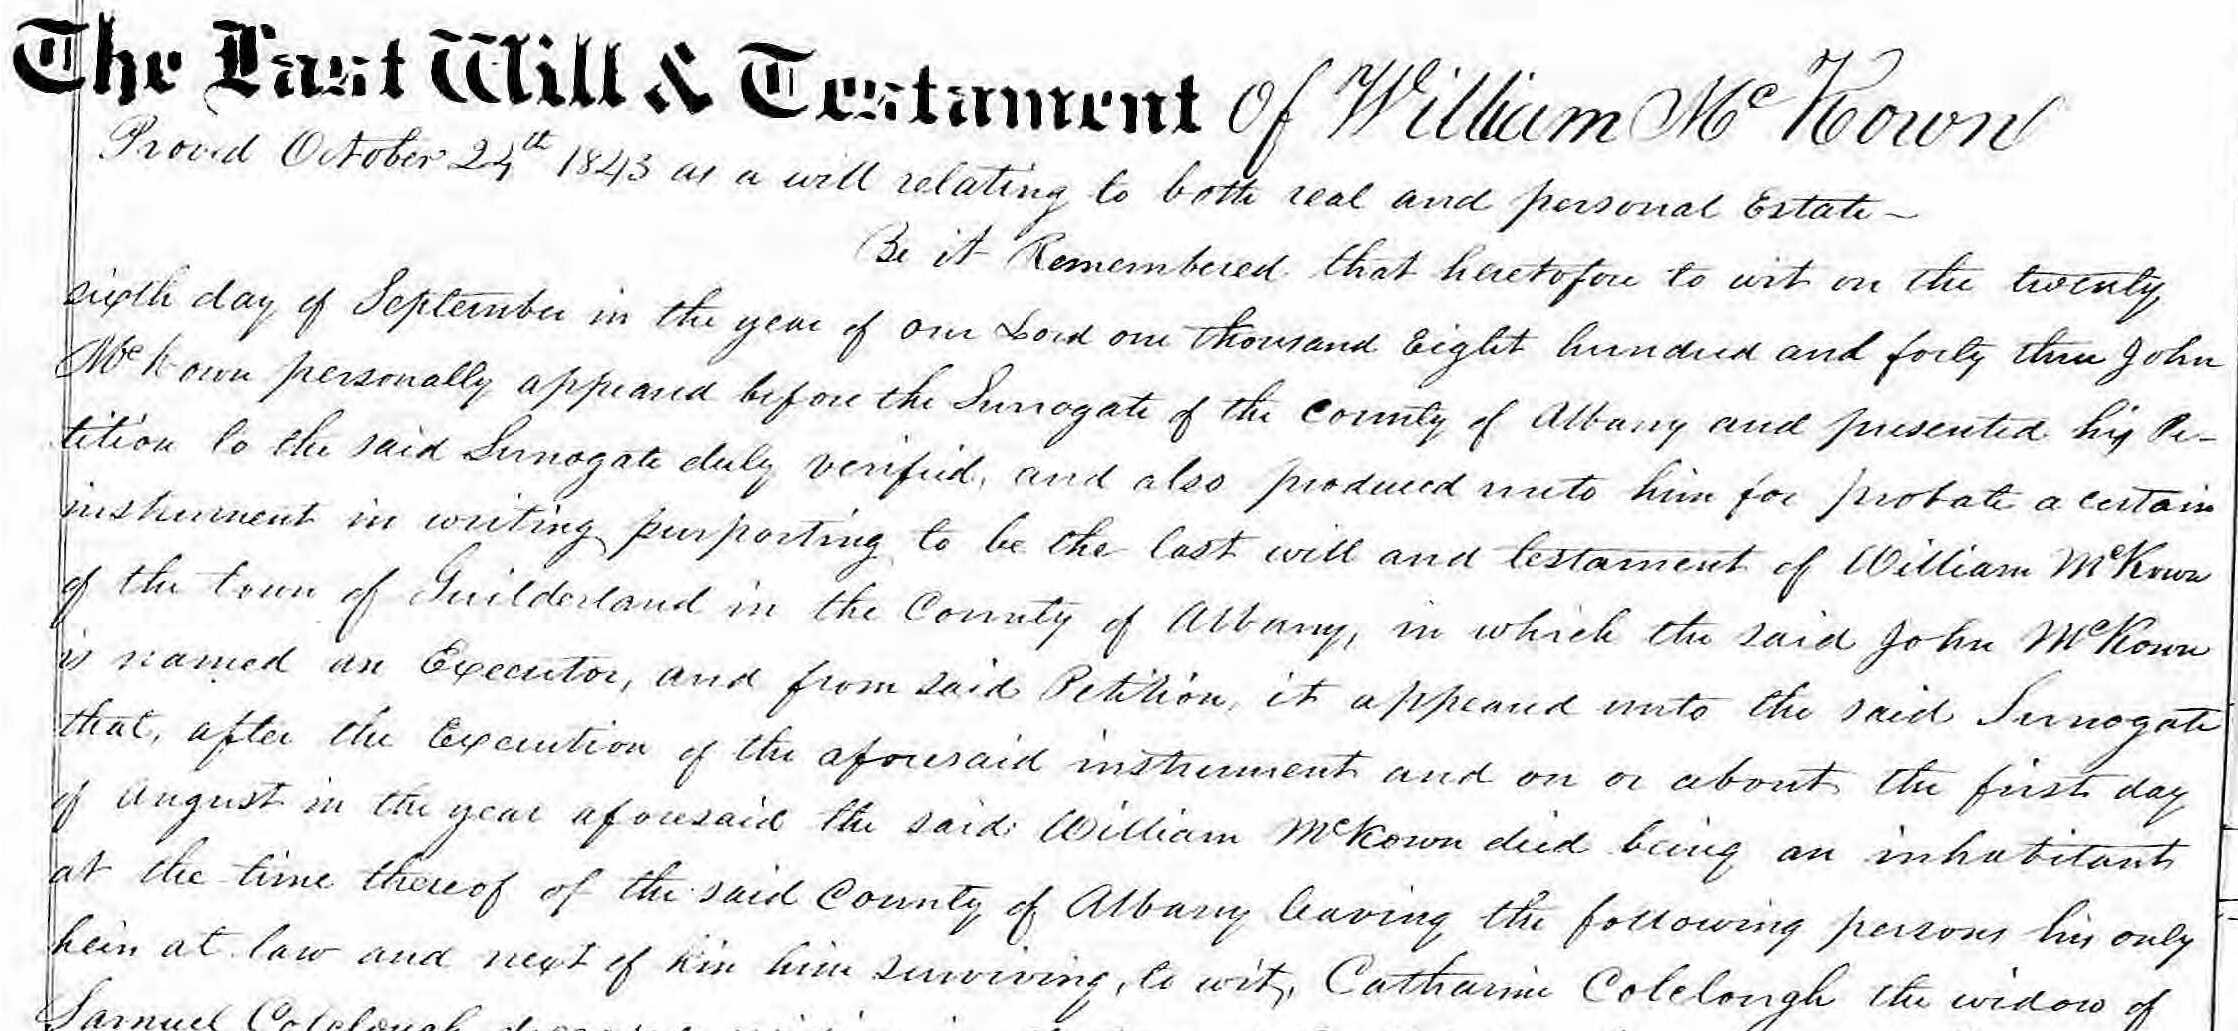 The Last Will & Testament of William McKown
Proved October 24th 1843 as a will relating to both real and personal Estate—
Be it Remembered that heretofore to wit on the twenty
sixth day of September in the year of our Lord one thousand Eight hundred and forty three John
McKown personally appeared before the Surrogate of the County of Albany and presented his Pe-
tition to the said Surrogate duly verified, and also produced unto him for probate a certain
instrument in writing purporting to be the last will and testament of William McKown
of the town of Guilderland in the County of Albany, in which the said John McKown
is named an Executor, and from said Petition, it appeared unto the said Surrogate
that, after the Execution of the aforesaid instrument and on or about the first day
of August in the year aforesaid the said William McKown died being an inhabitant
at the time thereof of the said County of Albany leaving the following persons his only
heirs at law and next of kin him surviving, to wit, Catharine Colclough the widow of
Samuel Colclough